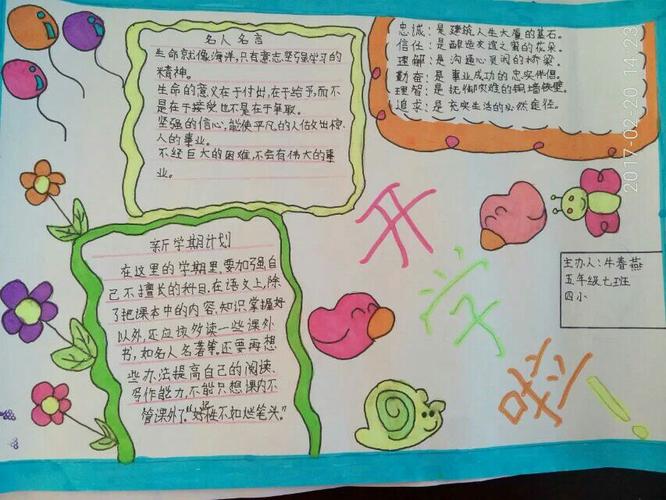 名人名言
生命就像海洋,只有意志坚强学习的
精神。
生命的意义在于付出,在于给予,而不
是在于接受,也不是在于争取。
坚强的信心,能使平凡的人们做出惊
人的事业。
不经巨大的困难,不会有伟大的事
业。
忠诚:是建筑人生大厦的基石。
信任:是酿造友谊之蜜的花朵。
理解:是沟通心灵间的桥梁。
勤奋:是事业成功的忠实伴侣。
理智:是抚御灾难的铜墙铁壁。
追求:是充实生活的必然途径。
新学期计划
在这里的学期里,要加强自
己不擅长的科目,在语文上,除
了把课本中的内容、知识掌握好
以外,还应该多读一些课外
书,如名人名著等,还要再想
些办法提高自己的阅读、
写作能力,不能只想课内不
管课外了"好性不如烂笔头。"
开
学
啦!
主办人:牛春燕
五年级七班
四小
2017-02-20 14:23